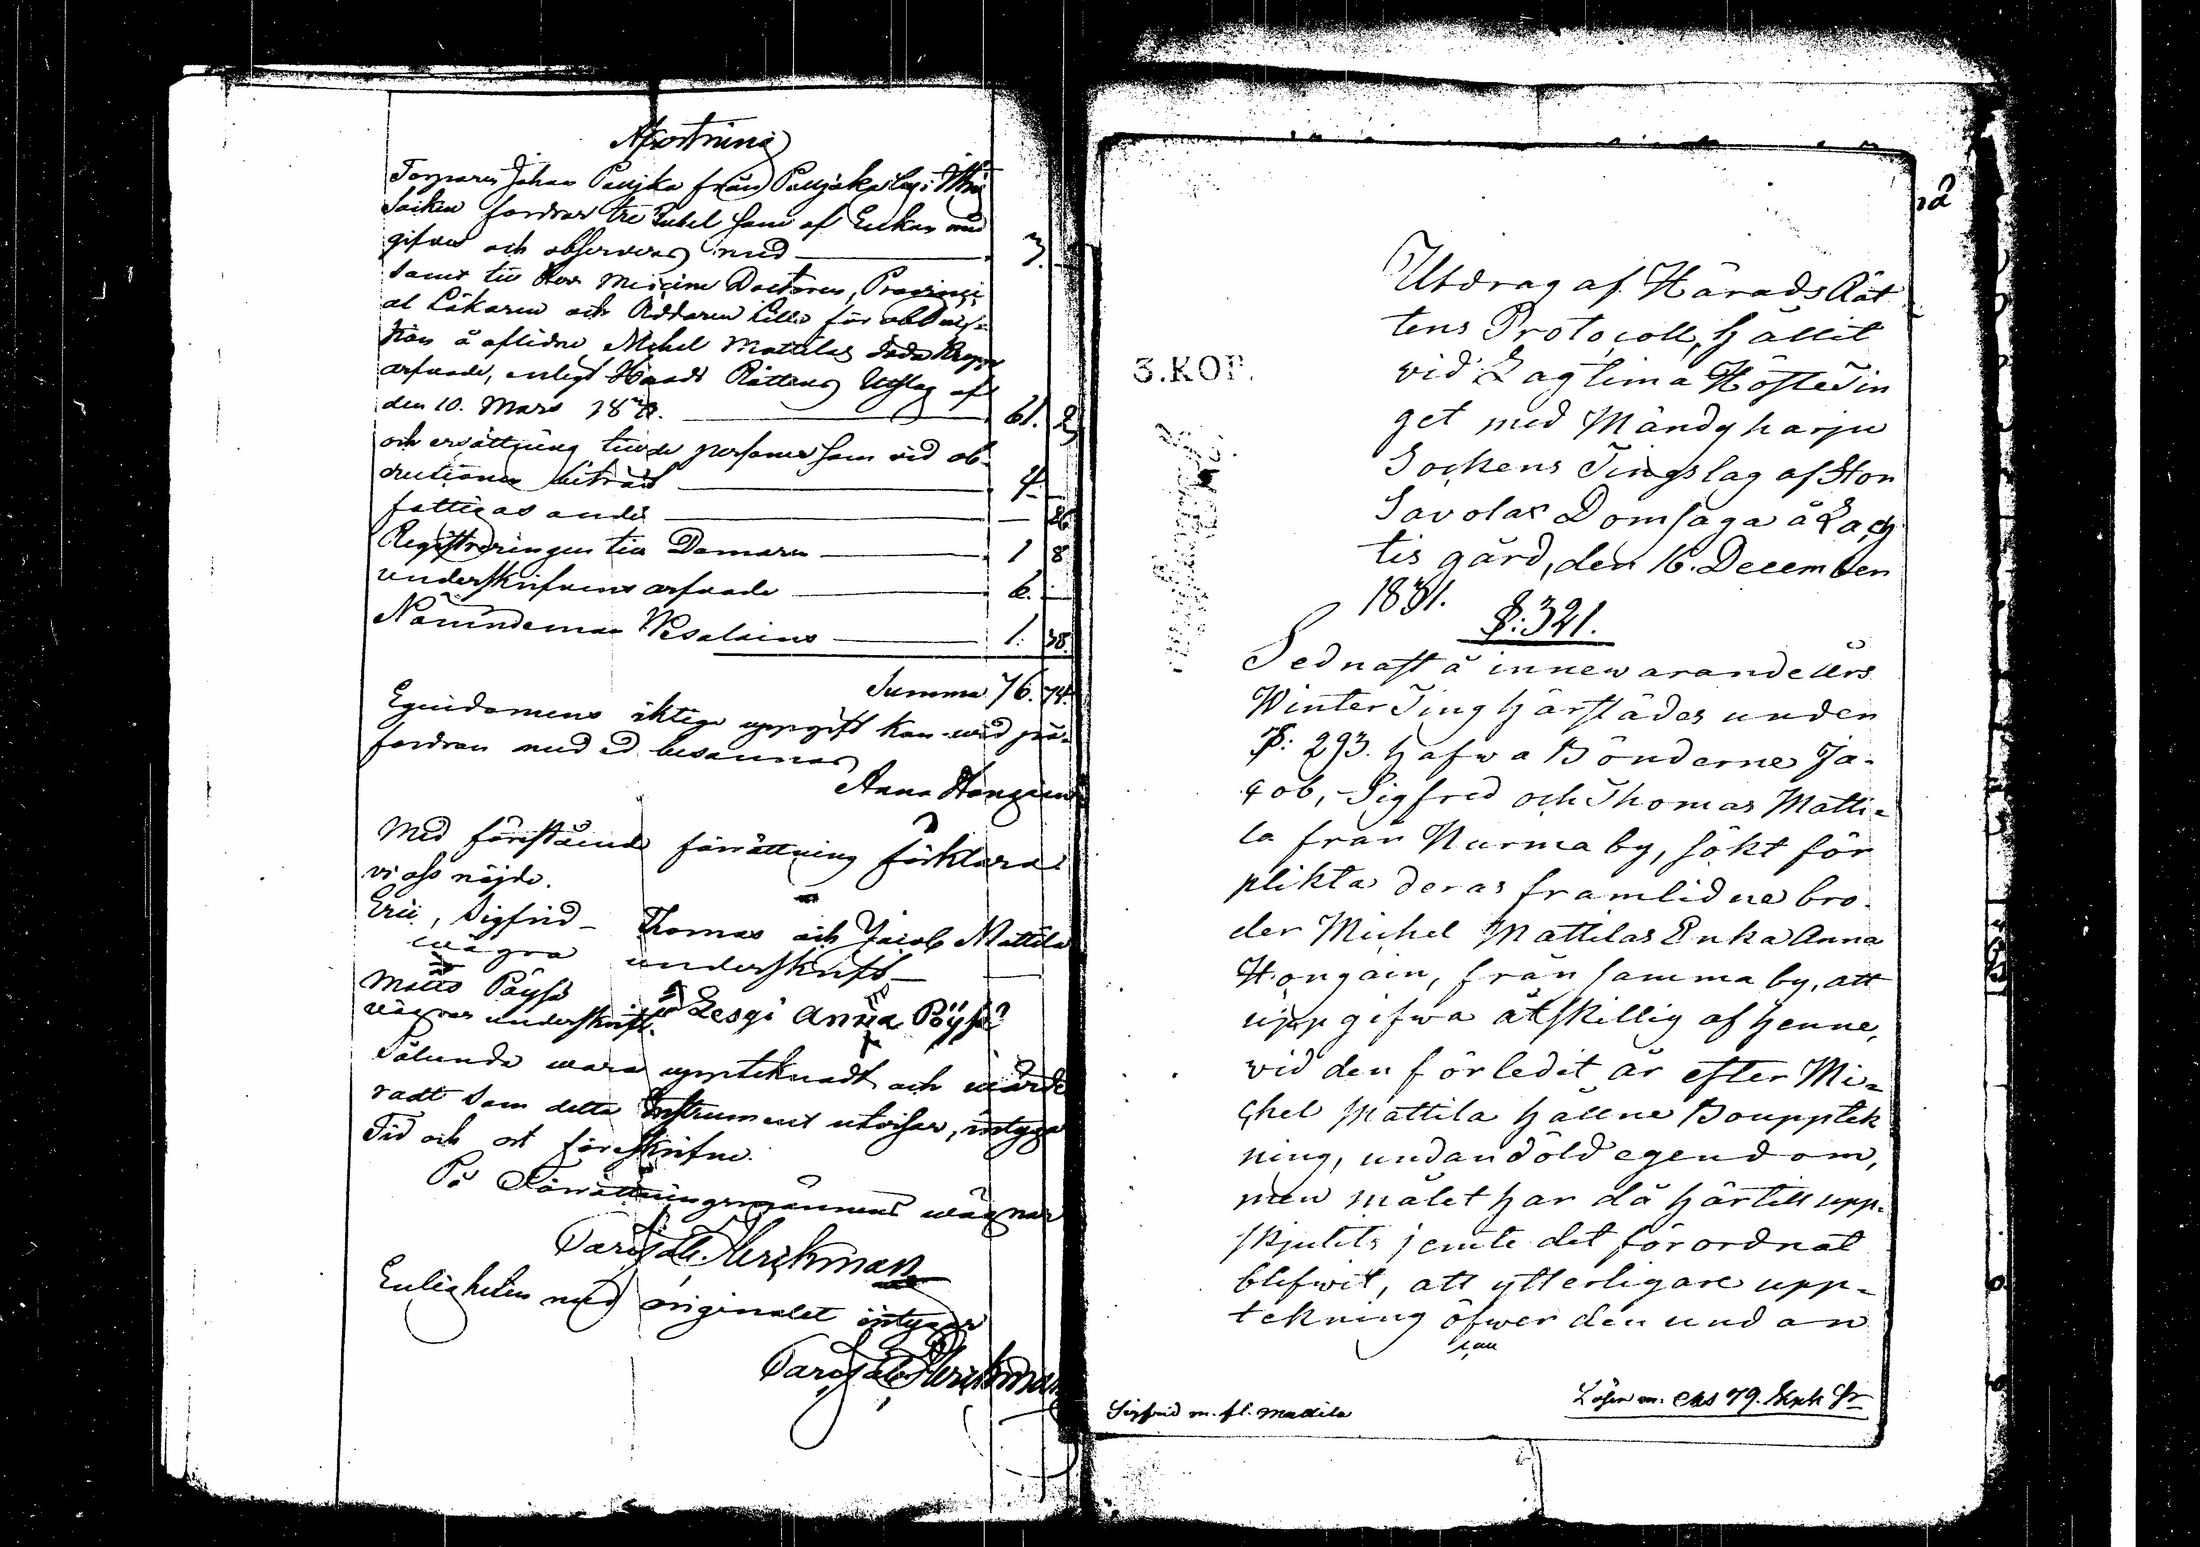 Afkortning
Torparen Johan Paujka från Paujakala by i
Socken fordrar tre Rubel som af Enkan med
gifves och observeras med 3. —
samt till Herr Medicine Doctoren, Provinci
al Läkaren och Riddaren Lille för obduc-
tion å aflidne Mickel Mattilas döda kropp
arfvode, enligt Härads Rättens Utslag af
den 10. Mars 61. 2
och ersättning till de personer som vid ob-
ductionen biträdt 4. —
fattigas andel — 26
Registreringen till Domaren 1 8
underskrifvens arfvode 6. —
Nämndeman Vesalains 1. 38.
Summa 76. 74.
Egendomens riktiga uppgift kan wid på-
fordran med ed besannas
Anna Hongain
Med förestående förrättning förklara
vi oss nöjde.
Eric, Sigfrid — Thomas och Jacob Mattila
wägna underskrift —
Matts Päysä Lesgi Anna Pöysä
wägnar underskrift.
Sålunda wara uppteknadt och wärde
radt som detta Instrument utvisar, intyga
Tid och ort föreskrifne.
På Förrättningsmännens wägnar
Enligheten med originalet intygar
3. KOP.
12
Utdrag af Härads Rät
tens Protocoll, hållit
vid Lagtima Höste Tin
get med Mändyharju
Sockens Tingslag af Stor
Savolax Domsaga å Lach
tis gård, den 16. December
1831.
§: 321.
Sednast å innewarande års
Winter Ting härstädes under
§: 293. hafwa Bönderne Ja-
cob, Sigfred och Thomas Matti-
la från Nurmaby, sökt för
plikta deras framlidne bro-
der Michel Mattilas Enka Anna
Hongain, från samma by, att
uppgifwa åtskillig af henne,
vid den förledit år efter Mi-
chel Mattila hållne Boupptek
ning, undandöld egendom,
men målet har då härtill upp-
skjutits jemte det förordnat
blifwit, att ytterligare upp-
tekning öfwer den undan
Sigfrid m. fl. Mattila
Lösen m.